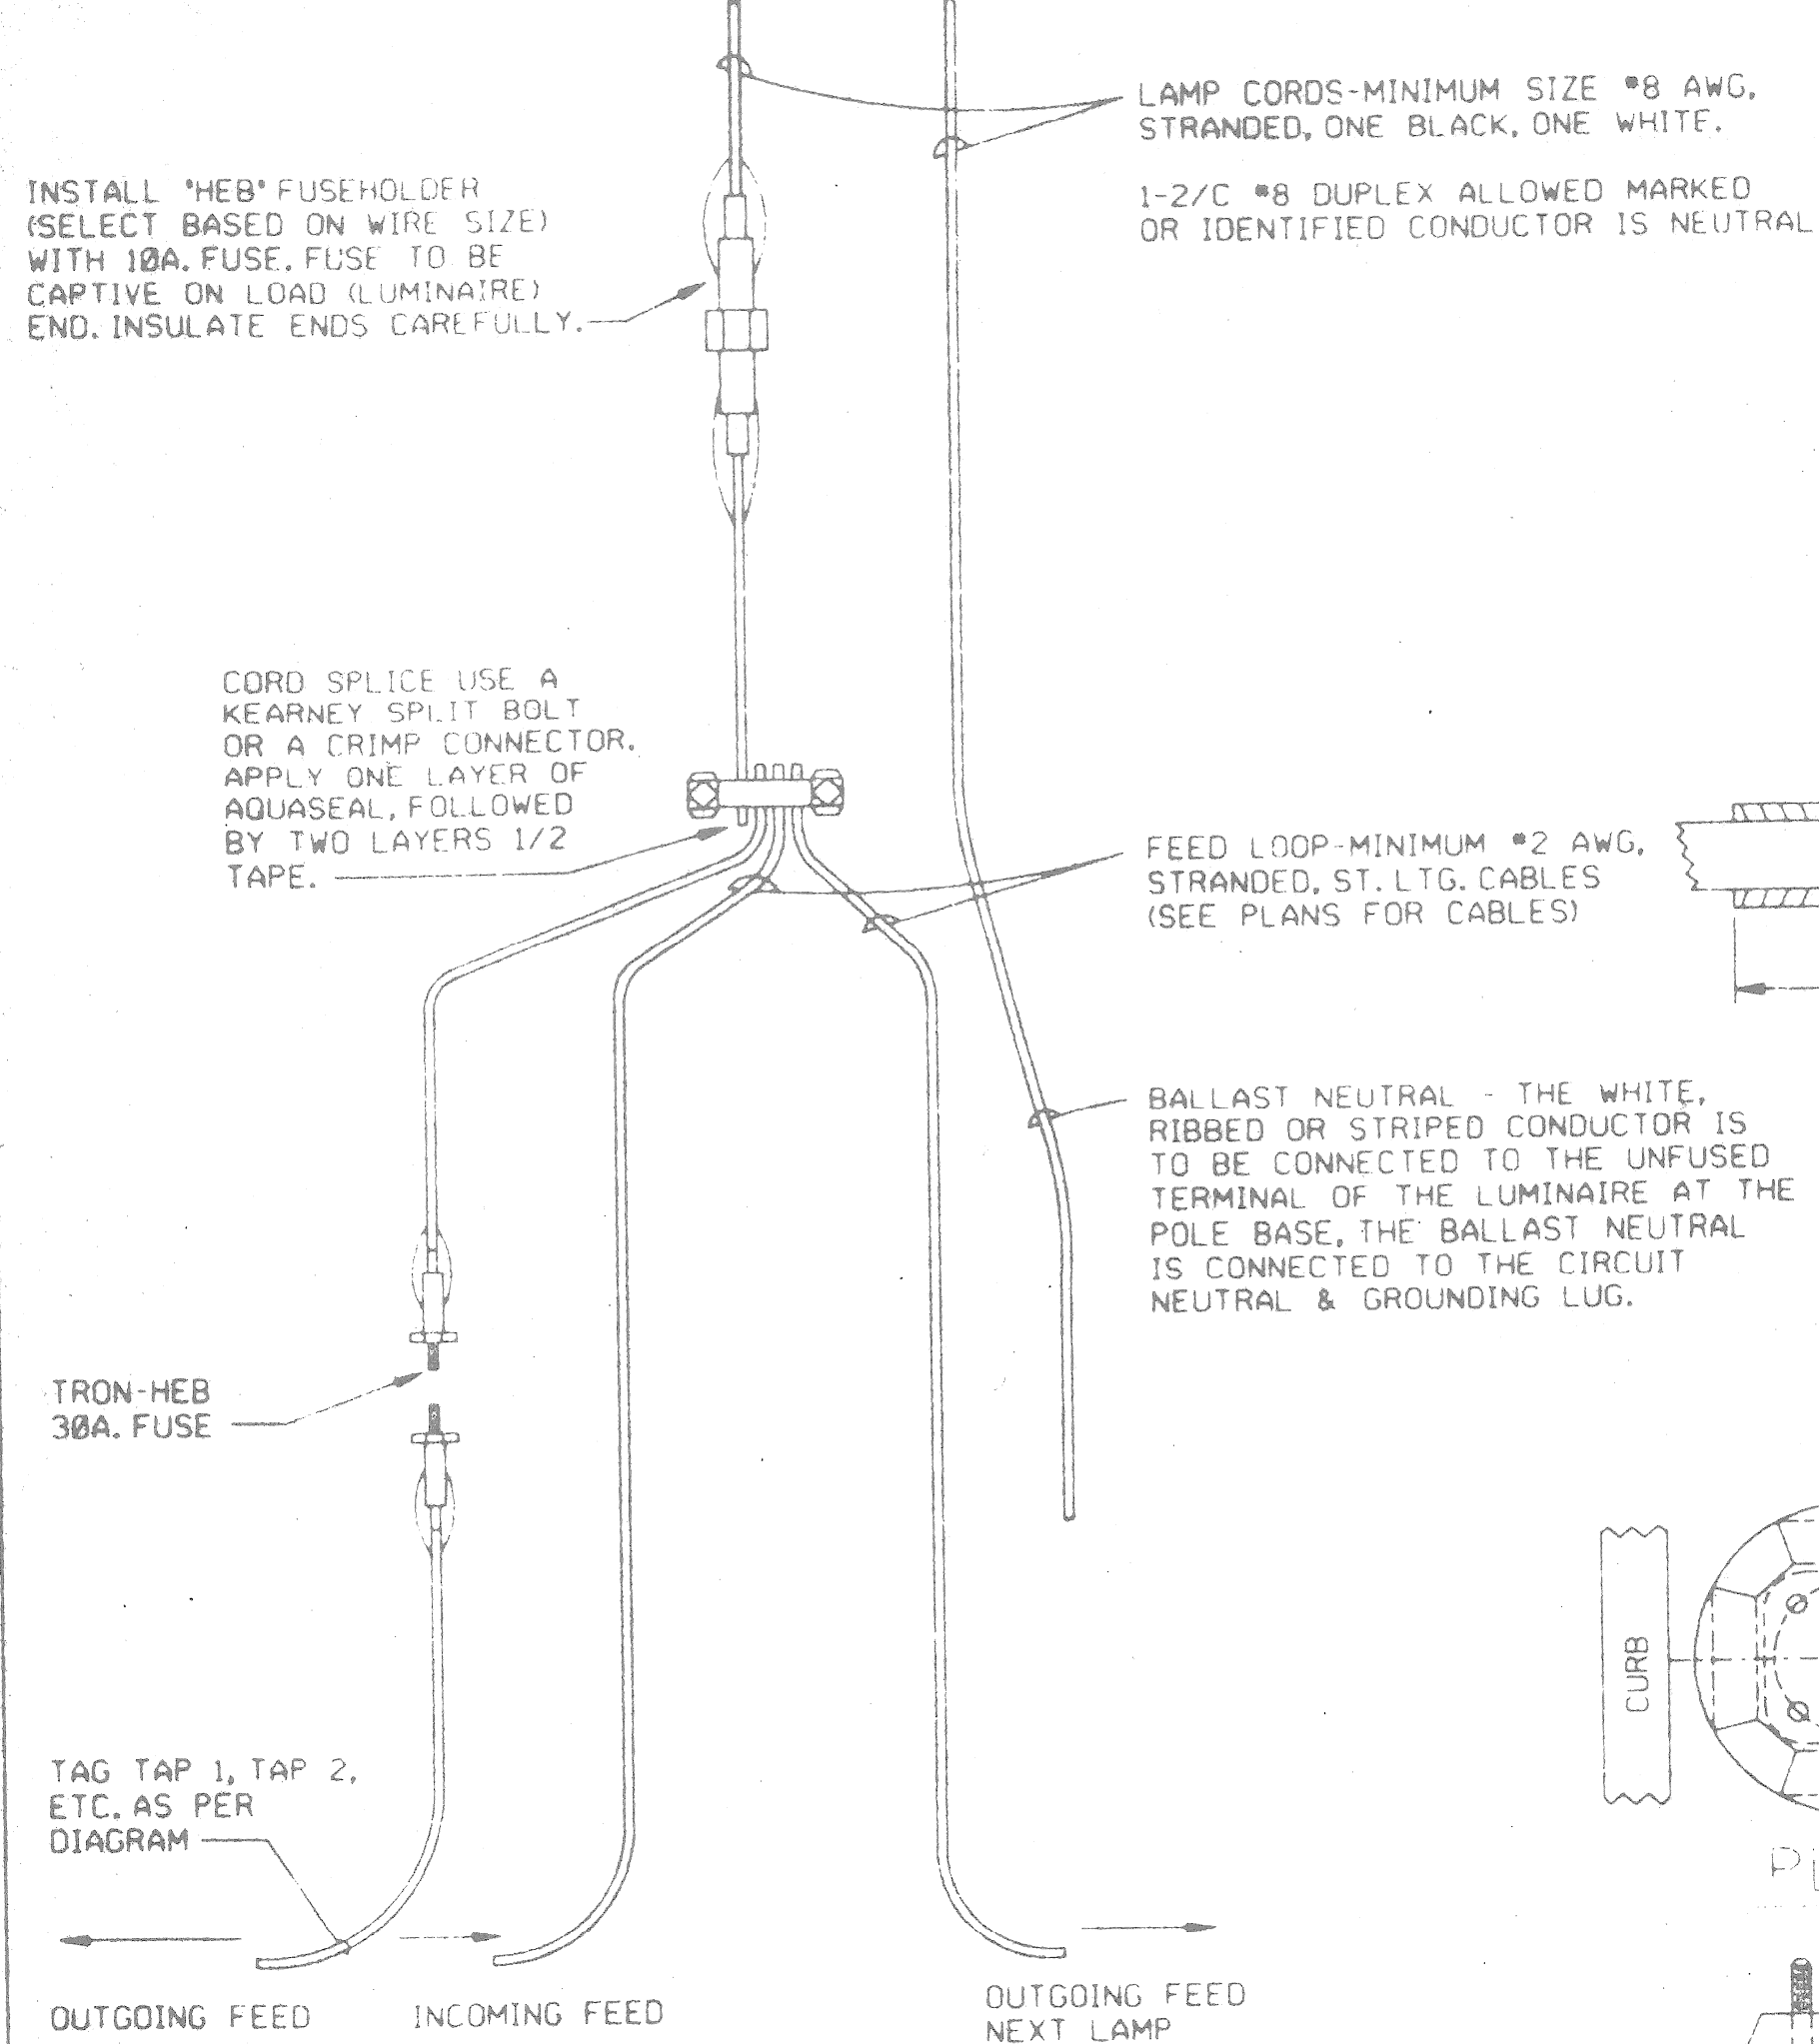 LAMP CORDS-MINIMUM SIZE #8 AWG.
STRANDED, ONE BLACK, ONE WHITE.
1-2/C #8 DUPLEX ALLOWED MARKED
OR IDENTIFIED CONDUCTOR IS NEUTRAL
INSTALL 'HEB' FUSEHOLDER
(SELECT BASED ON WIRE SIZE)
WITH 10A. FUSE. FUSE TO BE
CAPTIVE ON LOAD (LUMINAIRE)
END. INSULATE ENDS CAREFULLY.
CORD SPLICE USE A
KEARNEY SPLIT BOLT
OR A CRIMP CONNECTOR.
APPLY ONE LAYER OF
AQUASEAL, FOLLOWED
BY TWO LAYERS 1/2
TAPE.
FEED LOOP-MINIMUM #2 AWG.
STRANDED, ST. LTG. CABLES
(SEE PLANS FOR CABLES)
BALLAST NEUTRAL - THE WHITE,
RIBBED OR STRIPED CONDUCTOR IS
TO BE CONNECTED TO THE UNFUSED
TERMINAL OF THE LUMINAIRE AT THE
POLE BASE, THE BALLAST NEUTRAL
IS CONNECTED TO THE CIRCUIT
NEUTRAL & GROUNDING LUG.
TRON-HEB
30A. FUSE
CURB
TAG TAP 1, TAP 2,
ETC. AS PER
DIAGRAM
OUTGOING FEED
INCOMING FEED
OUTGOING FEED
NEXT LAMP